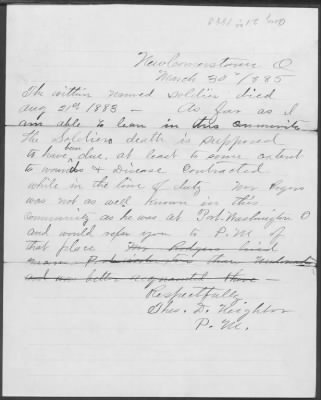 Newcomerstown O
March 30th 1885
The within named soldier died
aug 21st 1883 — As far as I
am able to learn in this community
the Soldiers death is supposed
to have been due, at least to some extent
to wounds & Disease Contracted
while in the line of duty Mr Rogers
was not as well known in this
community as he was at Port Washington O
and would refer you to P.M. of
that place Mr Rodgers lived
near Port Washington than Newcomerstown
and was better acquainted there
Respectfully
Theo. D. Neighbor
P.M.